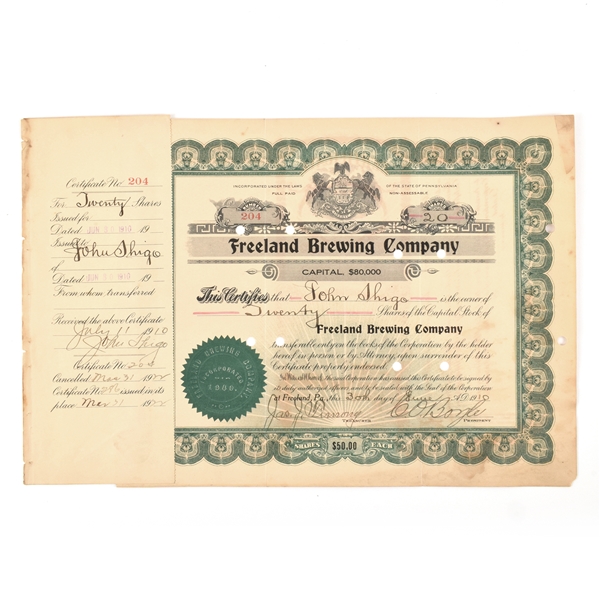 Certificate No 204
For Twenty Shares
Issued for
Dated JUN 30 1910 19
Issued to
John Shigo
of
Dated JUN 30 1910 19
From whom transferred
Received the above Certificate
July 11 1910
John Shigo
Certificate No 204
Cancelled Mar 21 1922
Certificate No issued in its
place Mar 21 1922
INCORPORATED UNDER THE LAWS OF THE STATE OF PENNSYLVANIA
FULL PAID NON-ASSESSABLE
204 20
Freeland Brewing Company
CAPITAL, $80,000
This Certifies that John Shigo is the owner of
Twenty Shares of the Capital Stock of
Freeland Brewing Company
transferable only on the books of the Corporation by the holder
hereof in person or by Attorney upon surrender of this
Certificate properly endorsed.
In Witness Whereof, the said Corporation has caused this Certificate to be signed by
its duly authorized officers and to be sealed with the Seal of the Corporation
at Freeland, Pa. this 30th day of June 1910
TREASURER PRESIDENT
FREELAND BREWING COMPANY
INCORPORATED
SHARES $50.00 EACH